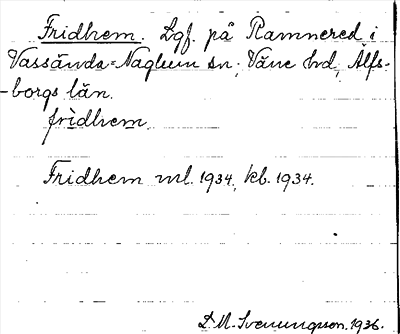 Fridhem. Lgf. på Ramnered i
Vassända-Naglum sn, Väne hd, Älfs-
borgs län.
frìdhem.
Fridhem ml. 1934, kb. 1934.
D. M. Svenungsson. 1936.